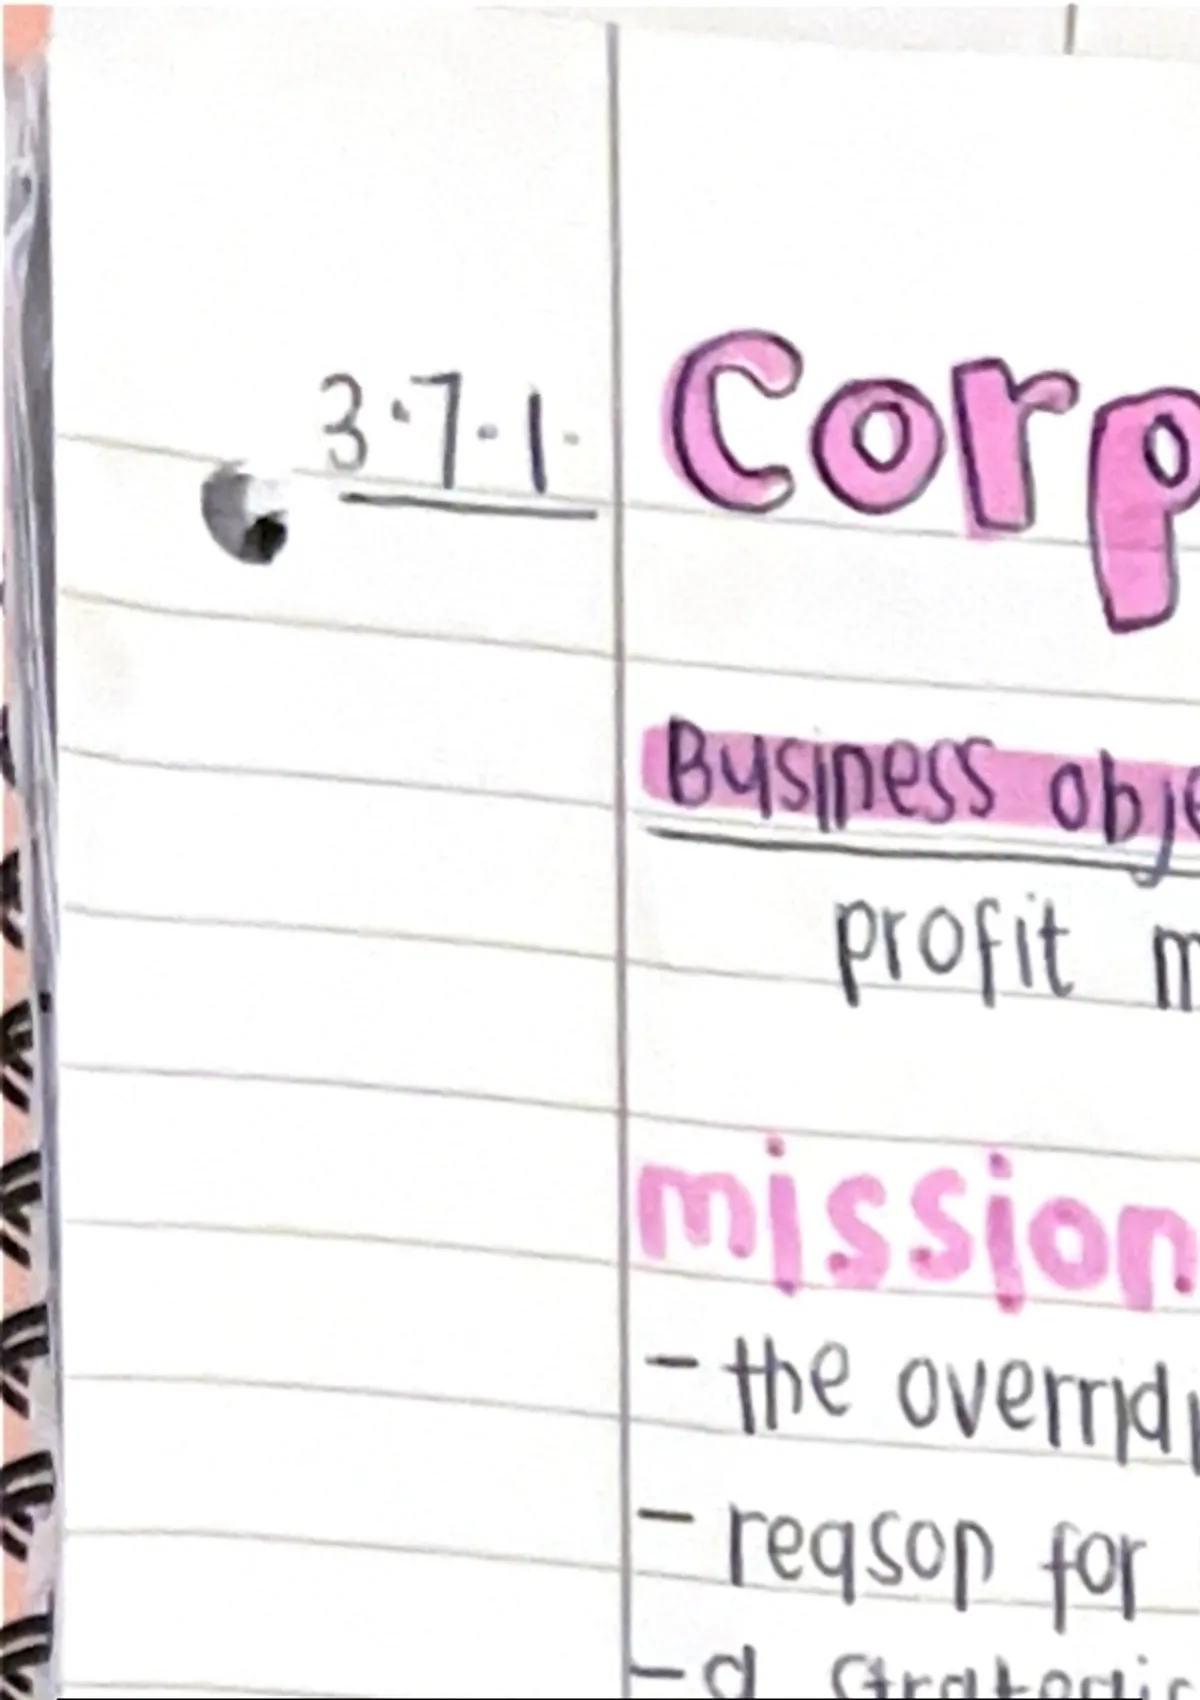 3.7.1.
Corp
Business obje
profit m
mission
- the overridi
- reason for
- a strategic